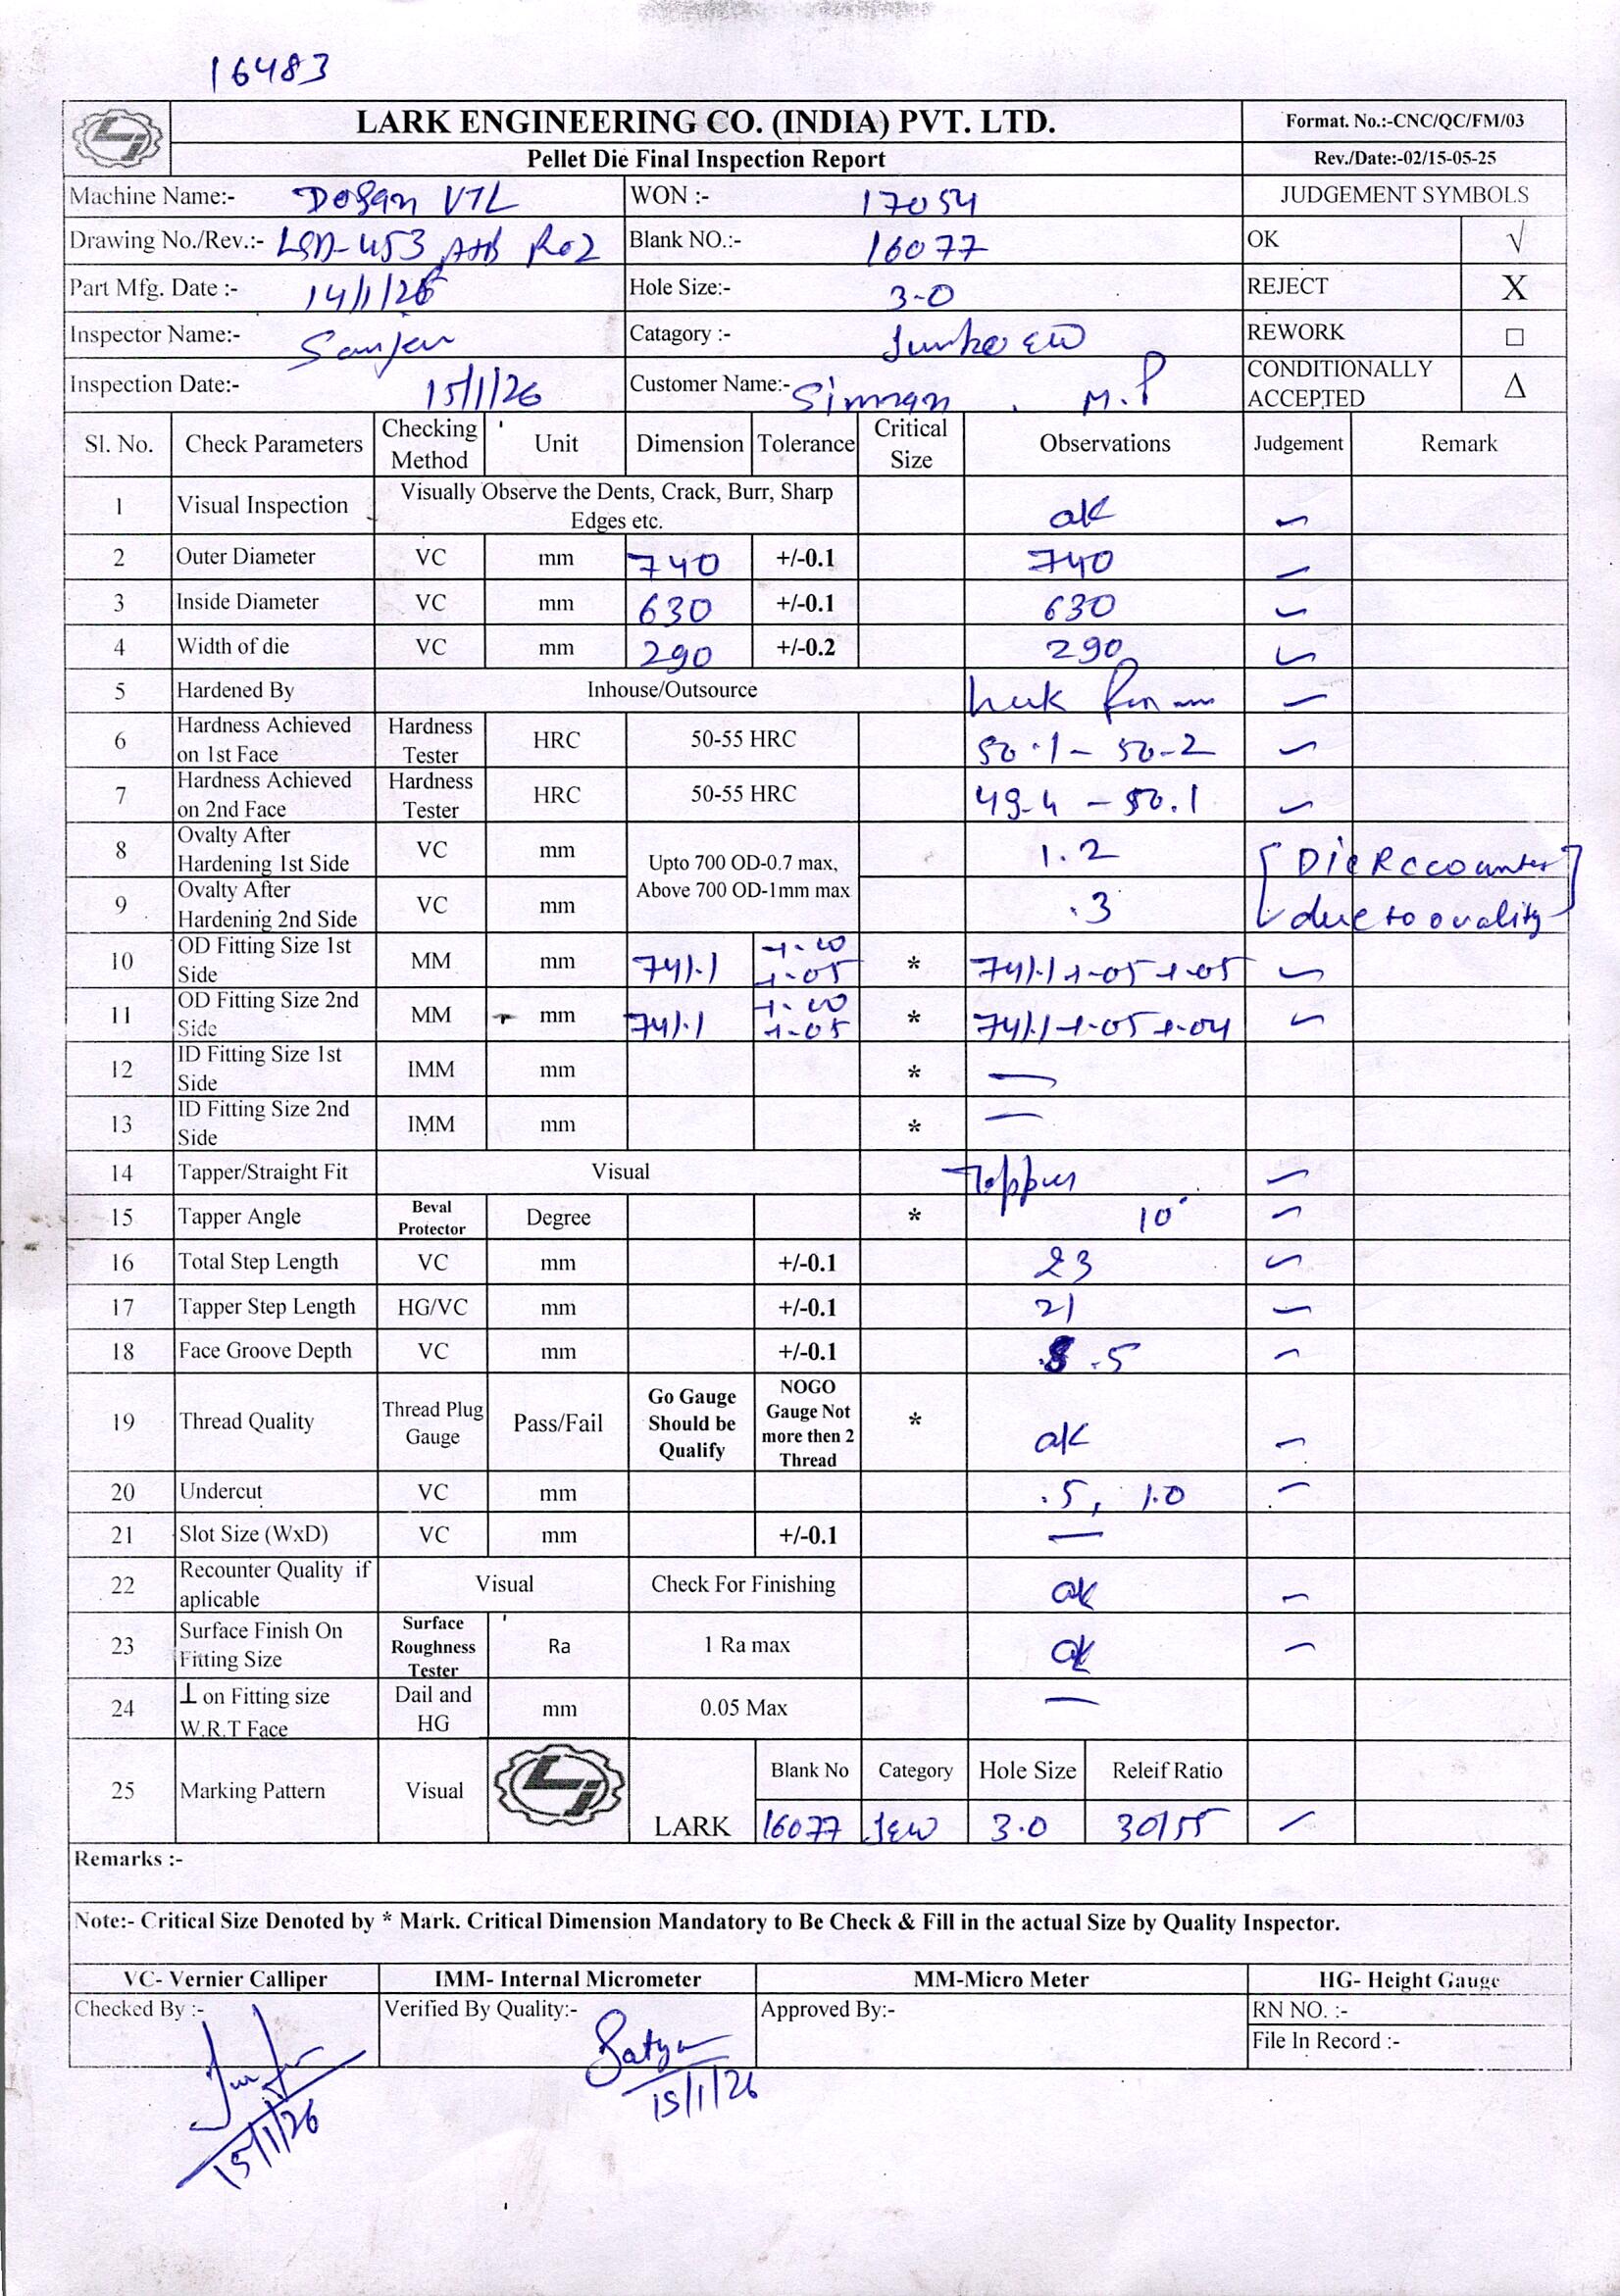 16483
LARK ENGINEERING CO. (INDIA) PVT. LTD.
Format. No.:-CNC/QC/FM/03
Pellet Die Final Inspection Report
Rev./Date:-02/15-05-25
Machine Name:- Dosan VTL WON :- 17054 JUDGEMENT SYMBOLS
Drawing No./Rev.:- LSD-453 R02 Blank NO.:- 16077 OK √
Part Mfg. Date :- 14/1/26 Hole Size:- 3.0 REJECT X
Inspector Name:- Sanjeev Catagory :- Jumbo EW REWORK □
Inspection Date:- 15/1/26 Customer Name:- Simran M.P CONDITIONALLY ACCEPTED Δ
Sl. No. Check Parameters Checking Method Unit Dimension Tolerance Critical Size Observations Judgement Remark
1 Visual Inspection Visually Observe the Dents, Crack, Burr, Sharp Edges etc. ok ✓
2 Outer Diameter VC mm 740 +/-0.1 740 ✓
3 Inside Diameter VC mm 630 +/-0.1 630 ✓
4 Width of die VC mm 290 +/-0.2 290 ✓
5 Hardened By Inhouse/Outsource ✓
6 Hardness Achieved on 1st Face Hardness Tester HRC 50-55 HRC 50.1 - 50.2 ✓
7 Hardness Achieved on 2nd Face Hardness Tester HRC 50-55 HRC 49.4 - 50.1 ✓
8 Ovalty After Hardening 1st Side VC mm Upto 700 OD-0.7 max, Above 700 OD-1mm max 1.2 [Die Rccounter
9 Ovalty After Hardening 2nd Side VC mm .3 due to ovality]
10 OD Fitting Size 1st Side MM mm 741.1 +.00 +.05 * 741.1 +.05 +.05 ✓
11 OD Fitting Size 2nd Side MM mm 741.1 +.00 +.05 * 741.1 +.05 +.04 ✓
12 ID Fitting Size 1st Side IMM mm * —
13 ID Fitting Size 2nd Side IMM mm * —
14 Tapper/Straight Fit Visual Tapper ✓
15 Tapper Angle Beval Protector Degree * 10° ✓
16 Total Step Length VC mm +/-0.1 23 ✓
17 Tapper Step Length HG/VC mm +/-0.1 21 ✓
18 Face Groove Depth VC mm +/-0.1 .5 ✓
19 Thread Quality Thread Plug Gauge Pass/Fail Go Gauge Should be Qualify NOGO Gauge Not more then 2 Thread * ok ✓
20 Undercut VC mm .5, 1.0 ✓
21 Slot Size (WxD) VC mm +/-0.1 —
22 Recounter Quality if aplicable Visual Check For Finishing ok ✓
23 Surface Finish On Fitting Size Surface Roughness Tester Ra 1 Ra max ok ✓
24 ⊥ on Fitting size W.R.T Face Dail and HG mm 0.05 Max —
25 Marking Pattern Visual LARK Blank No Category Hole Size Releif Ratio
16077 JEW 3.0 30/55 ✓
Remarks :-
Note:- Critical Size Denoted by * Mark. Critical Dimension Mandatory to Be Check & Fill in the actual Size by Quality Inspector.
VC- Vernier Calliper IMM- Internal Micrometer MM-Micro Meter HG- Height Gauge
Checked By :- Verified By Quality:- Satya Approved By:- RN NO. :-
File In Record :-
15/1/26
15/1/26